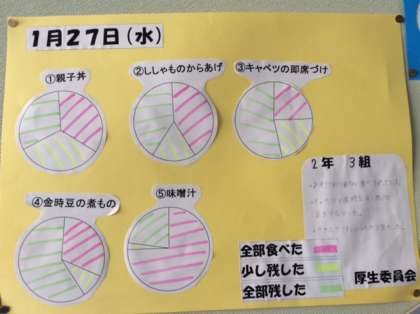 1月27日(水)
①親子丼
②ししゃものからあげ
③キャベツの即席づけ
④金時豆の煮もの
⑤味噌汁
2年 3組
全部食べた
少し残した
全部残した
厚生委員会